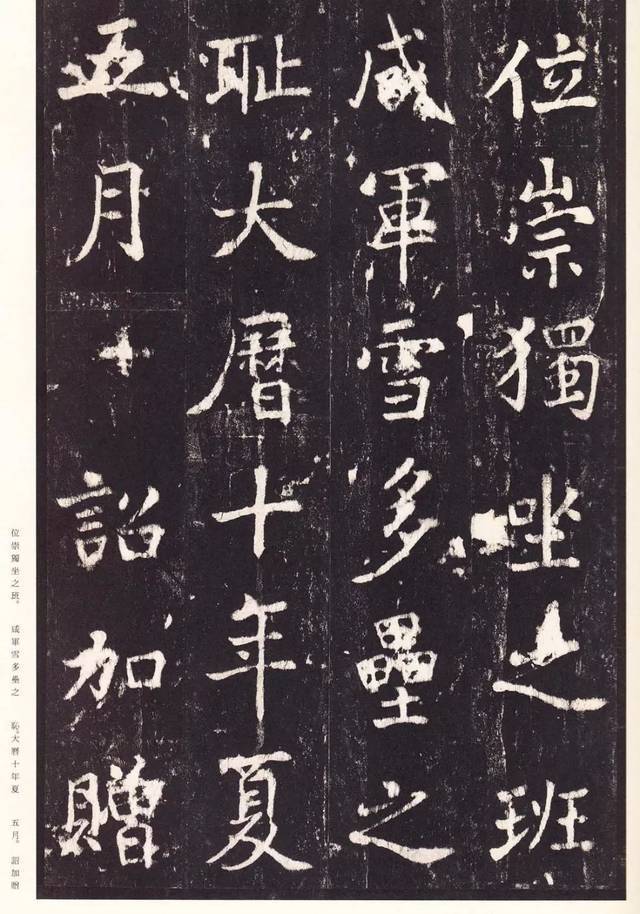 位崇獨坐之班
咸軍雪多壘之
恥大曆十年夏
五月十詔加贈
位崇獨坐之班。 咸軍雪多壘之 恥。大曆十年夏 五月。 詔加贈